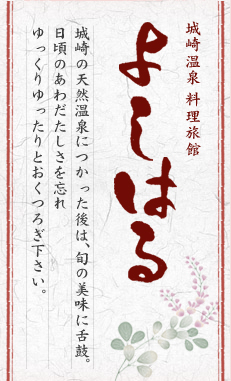 城崎温泉 料理旅館
よしはる
城崎の天然温泉につかった後は、旬の美味に舌鼓。
日頃のあわだたしさを忘れ
ゆっくりゆったりとおくつろぎ下さい。